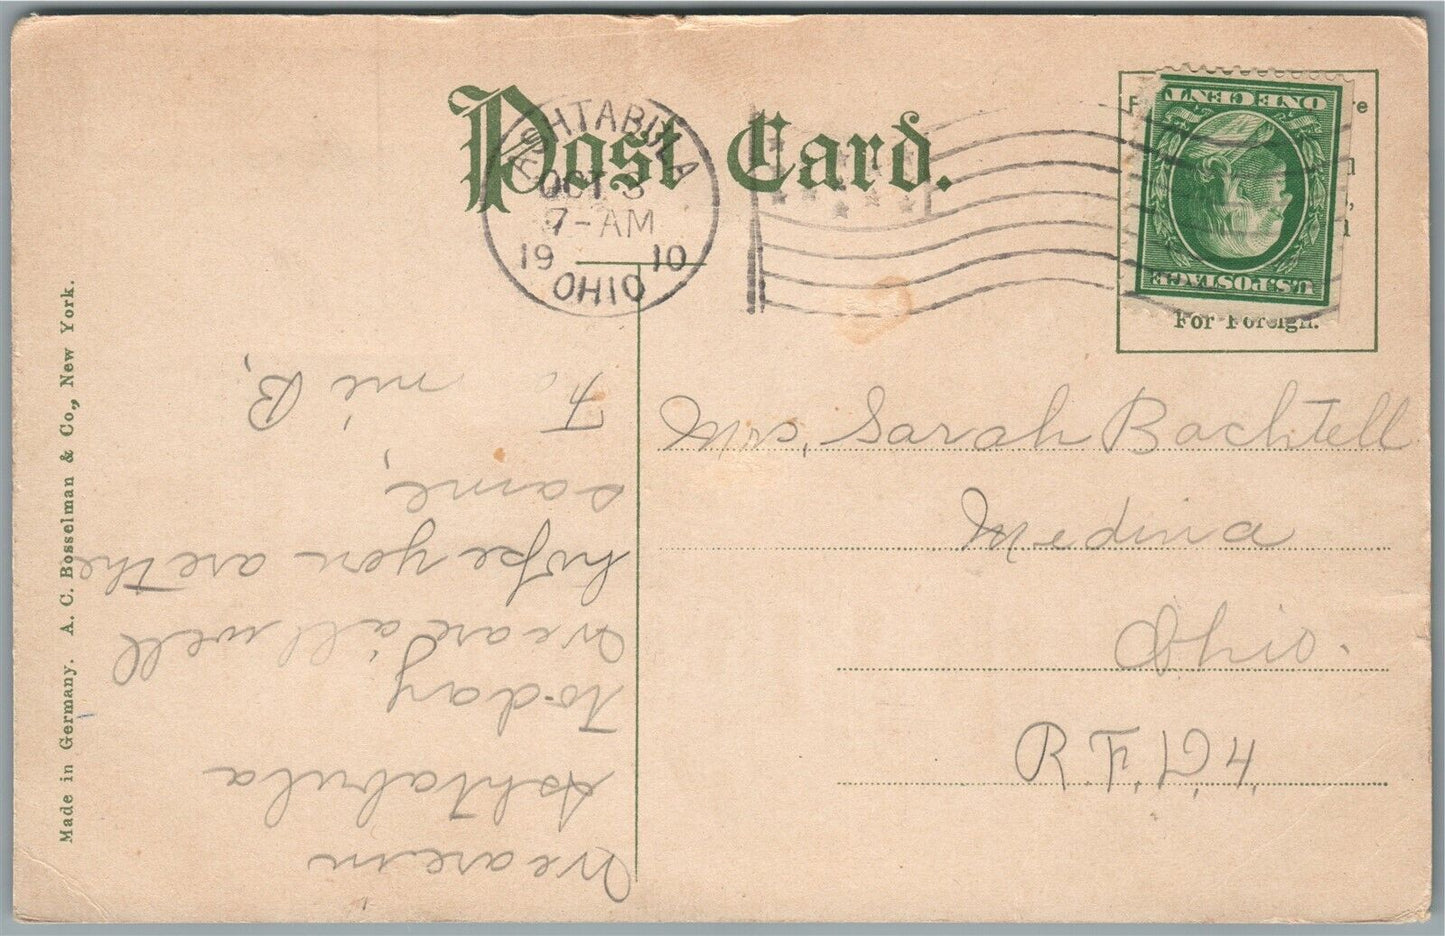 Post Card.
ASHTABULA
OCT 3
7-AM
19 10
OHIO
U.S. POSTAGE
ONE CENT
For Foreign.
Mrs. Sarah Bachtell
Medina
Ohio.
R.F.D 4
We are in
Ashtabula
to-day
We are all well
hope you are the
same,
B.
Made in Germany. A. C. Bosselman & Co., New York.